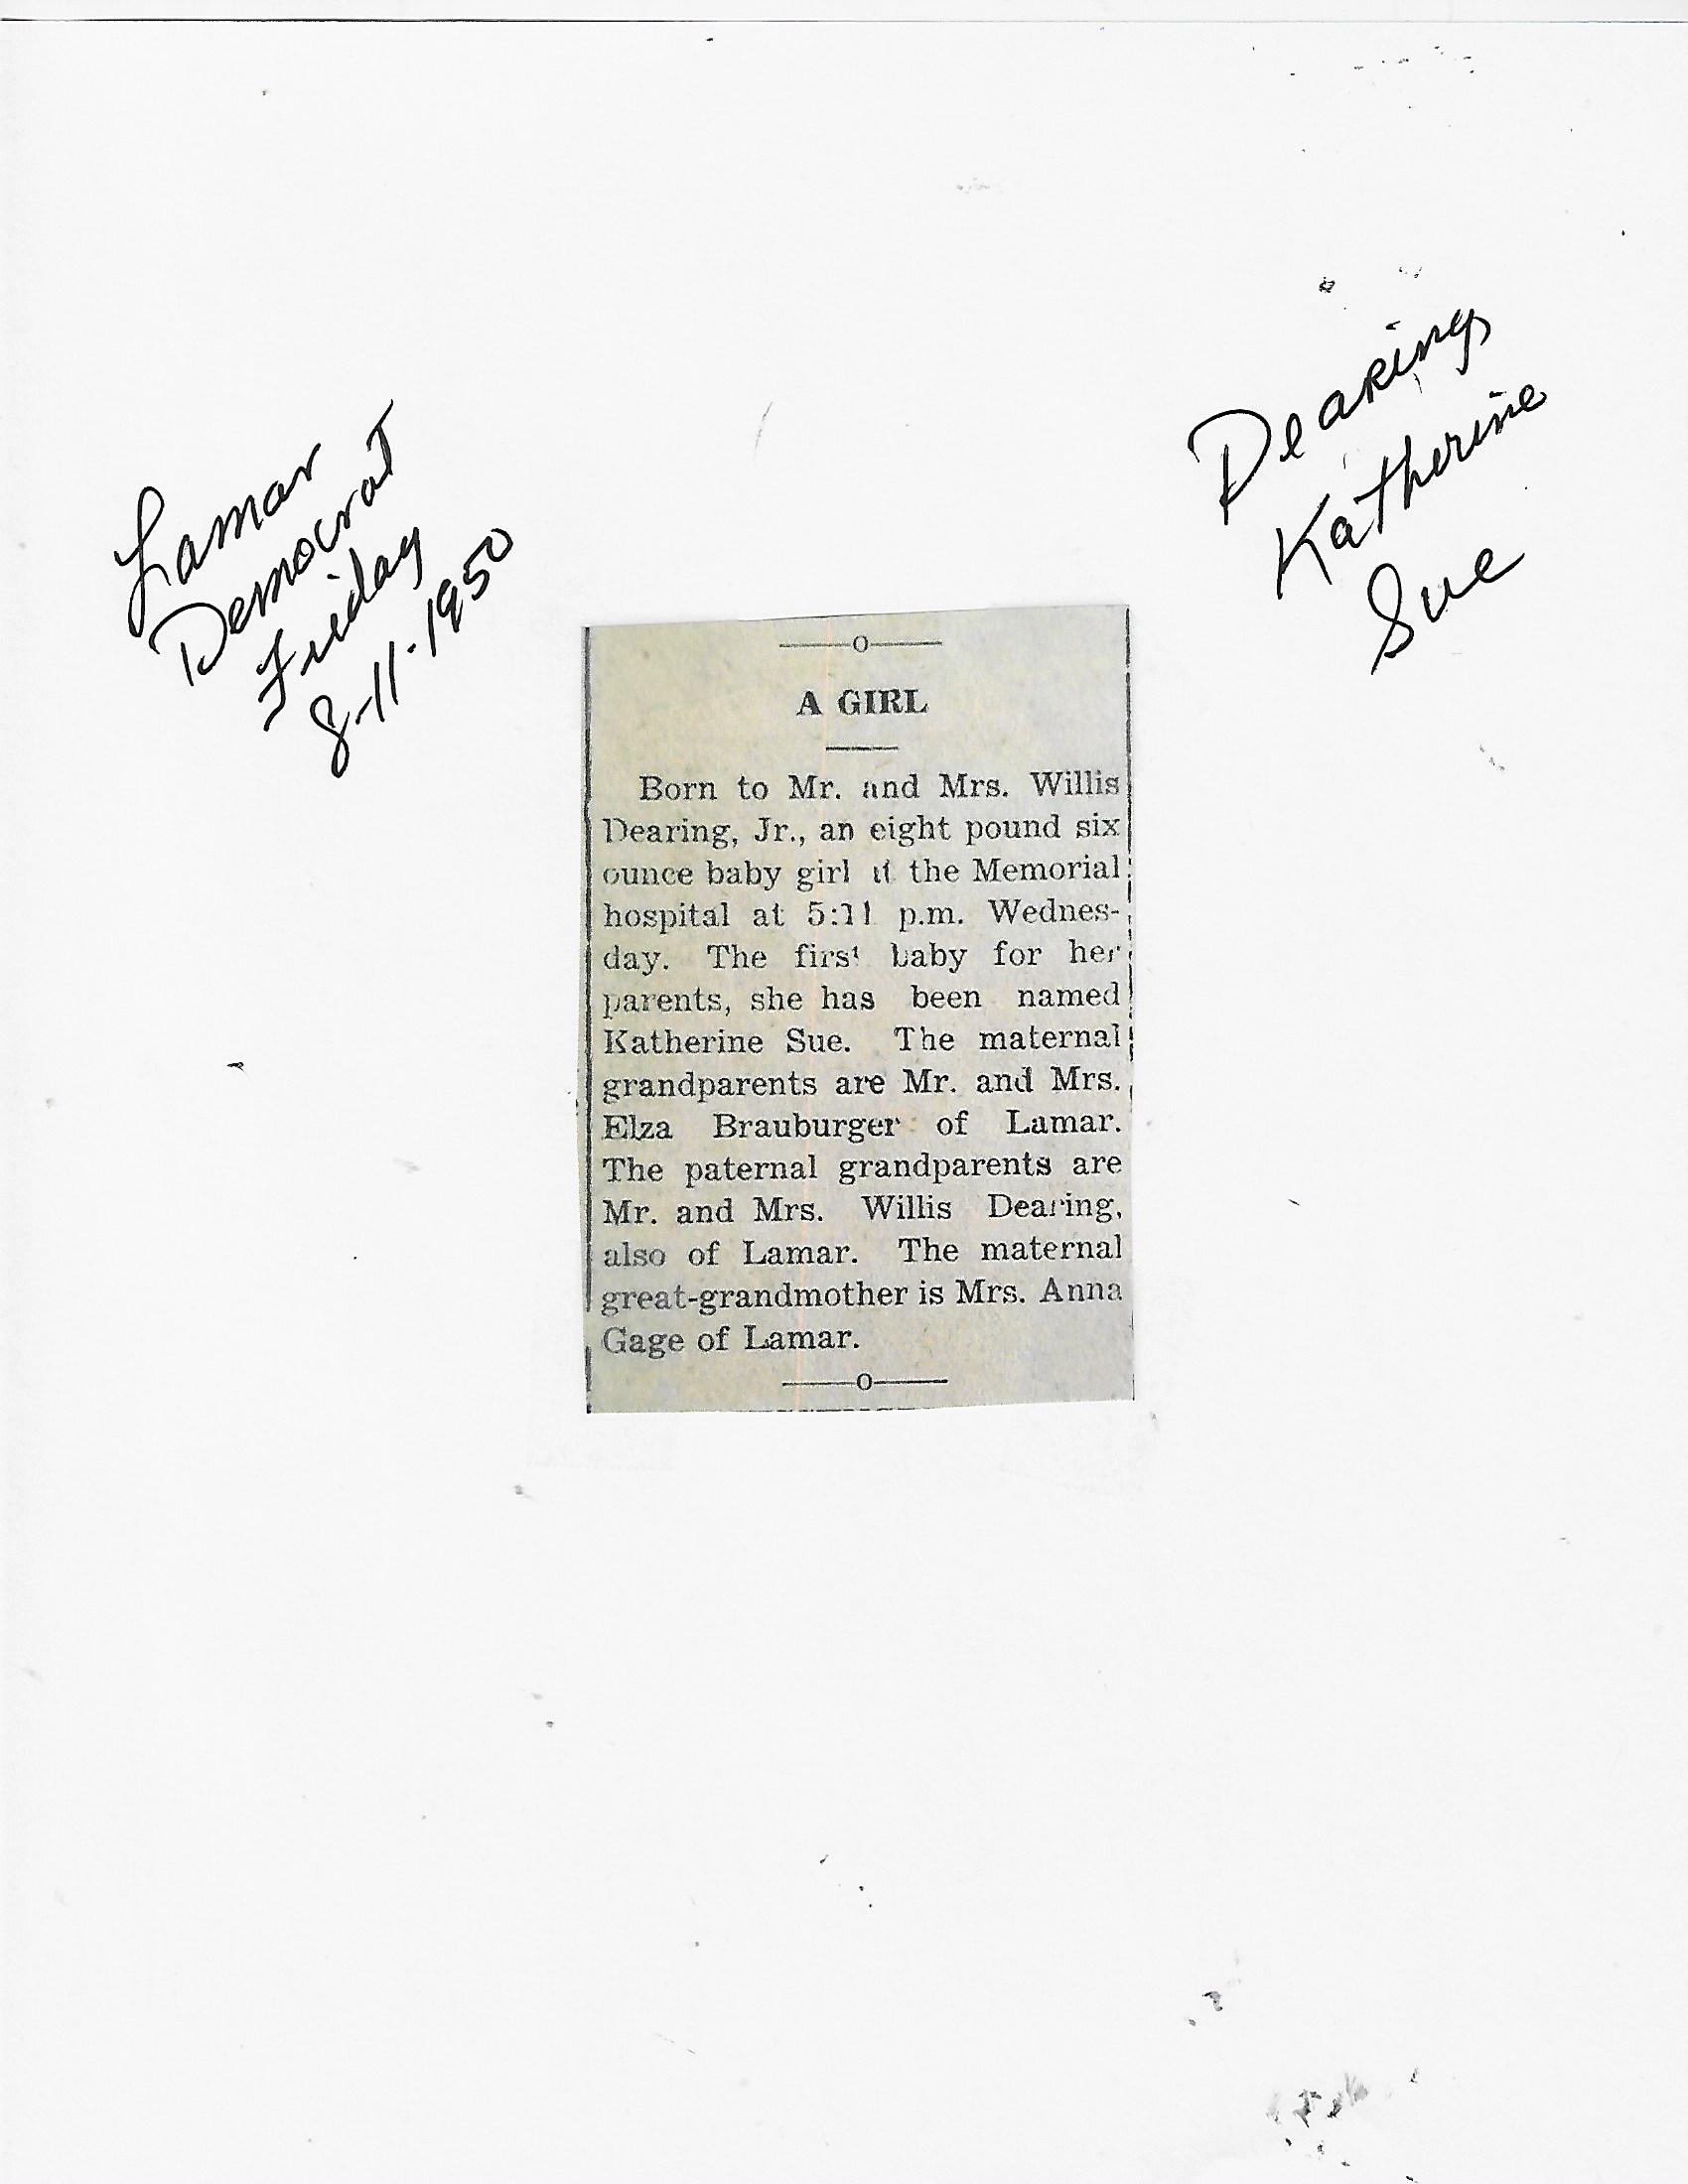 Lamar
Democrat
Friday
8-11-1950
Dearing
Katherine
Sue
—o—
A GIRL
Born to Mr. and Mrs. Willis
Dearing, Jr., an eight pound six
ounce baby girl at the Memorial
hospital at 5:11 p.m. Wednes-
day. The first baby for her
parents, she has been named
Katherine Sue. The maternal
grandparents are Mr. and Mrs.
Elza Brauburger of Lamar.
The paternal grandparents are
Mr. and Mrs. Willis Dearing,
also of Lamar. The maternal
great-grandmother is Mrs. Anna
Gage of Lamar.
—o—